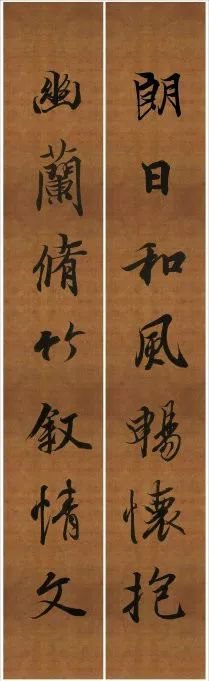 朗日和風暢懷抱
幽蘭脩竹敘情文